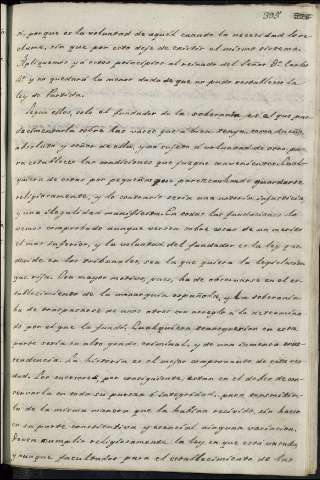 395
ti, porque es la voluntad de aquél cuando la necesidad lo re-
clama, sin que por esto deje de existir el mismo sistema.
Apliquemos ya estos principios al reinado del Señor Dn. Carlos
4º y no quedará la menor duda de que no pudo restablecer la
ley de Partida.
Segun ellos, solo el fundador de la soberanía es el que pue-
de alterarla cuantas veces que a bien tenga como dueño
absoluto y señor de ella, y a su sujeta al voluntad de otro pa-
ra establecer las condiciones que juzgue convenientes. Cual-
quiera de estas por pequeña que parezca ha de guardarse
religiosamente, y lo contrario sería una notoria injusticia,
y una ilegalidad manifiesta. En todas las fundaciones lo
vemos comprobado aunque versen sobre cosas de un merito
el mas inferior, y la voluntad del fundador es la ley que
decide en los tribunales, sea la que quiera la legislacion
que rija. Con mayor motivo, pues, ha de observarse en el es-
tablecimiento de la monarquía española, y la soberanía
ha de traspasarse de unos a otros con arreglo a lo determina-
do por el que la fundó. Cualquiera transgresion en esta
parte sería un alto grado criminal, y de una inmensa tras-
cendencia. La historia es el mejor comprobante de esta ver-
dad. Los sucesores, por consiguiente, estan en el deber de con-
servarla en toda su pureza é integridad, para transmitir-
la de la misma manera que la habían recibido, sin hacer
en su parte constitutiva y esencial ninguna variacion.
Deben cumplir religiosamente la ley, en que está
y aunque facultados para el establecimiento de las